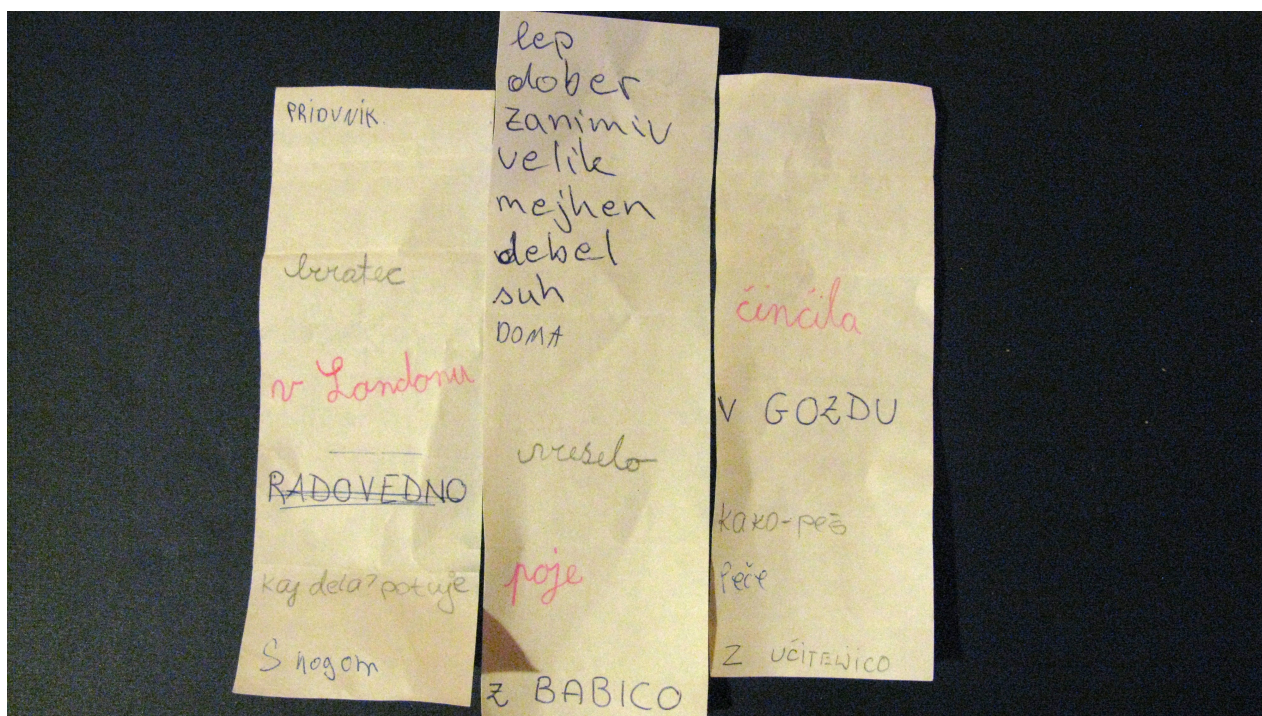 PRIDVNIK.
bratec
v Londonu
RADOVEDNO
kaj dela? potuje
S nogom
lep
dober
zanimiv
velik
mejhen
debel
suh
DOMA
veselo
poje
z BABICO
činčila
V GOZDU
KAKO-peš
Peče
Z UČITELJICO